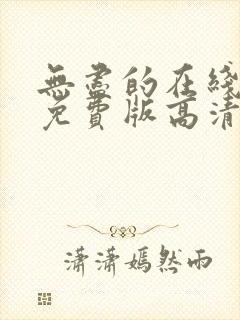 無盡的在綫
免費版高清
瀟瀟嫣然雨